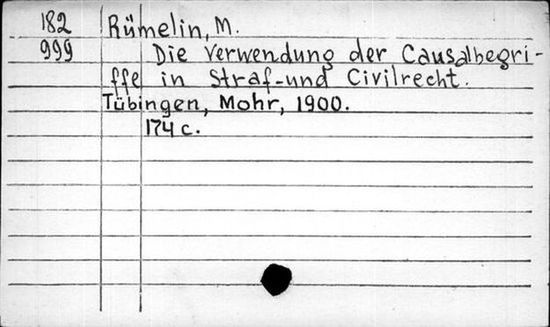 182 Rümelin, M.
999 Die Verwendung der Causalbegri-
ffe in Straf-und Civilrecht.
Tübingen, Mohr, 1900.
174 c.